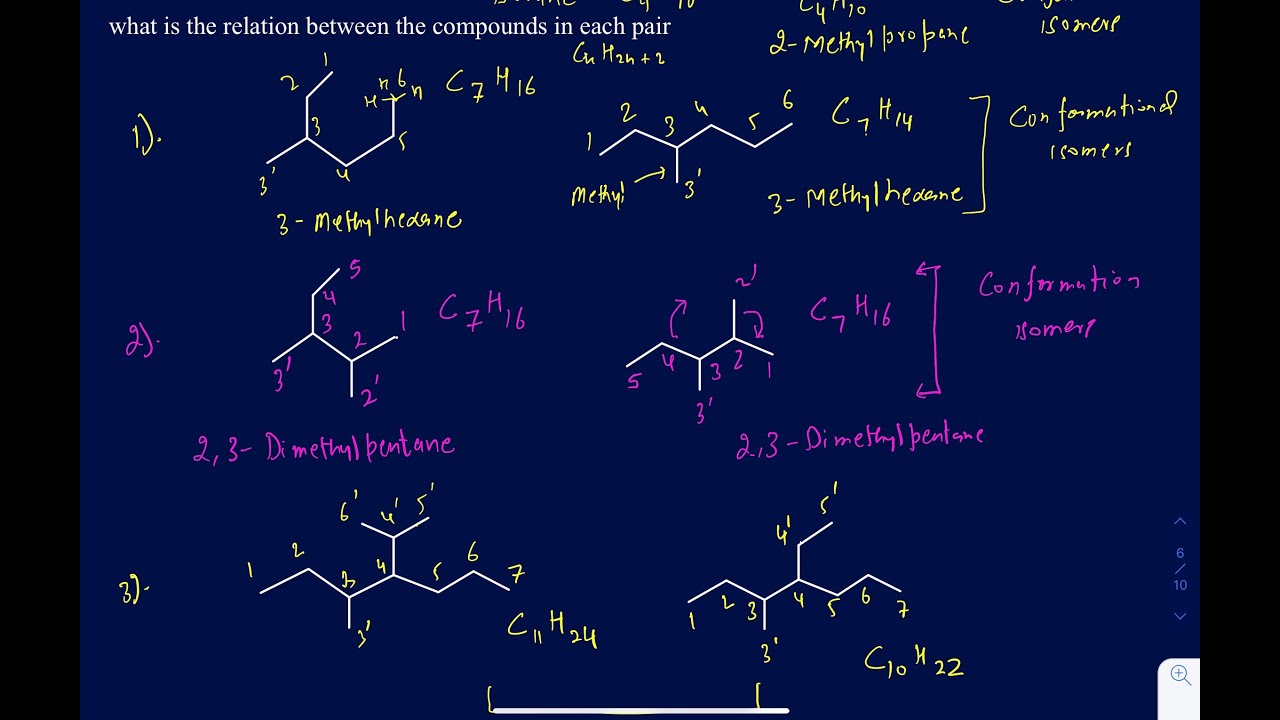 C4H10
isomers
what is the relation between the compounds in each pair
CnH2n+2
2-Methylpropane
1).
1 2 3 3' 4 5 6
H H H
C7H16
1 2 3 4 5 6
3'
Methyl
C7H14
Conformational
isomers
3-Methylhexane
3-Methylhexane
2).
5 4 3 2 1
3' 2'
C7H16
2'
5 4 3 2 1
3'
C7H16
Conformation
isomers
2,3-Dimethylpentane
2,3-Dimethylpentane
3).
6' 4' 5'
1 2 3 4 5 6 7
3'
C11H24
5'
4'
1 2 3 4 5 6 7
3'
C10H22
6
/
10